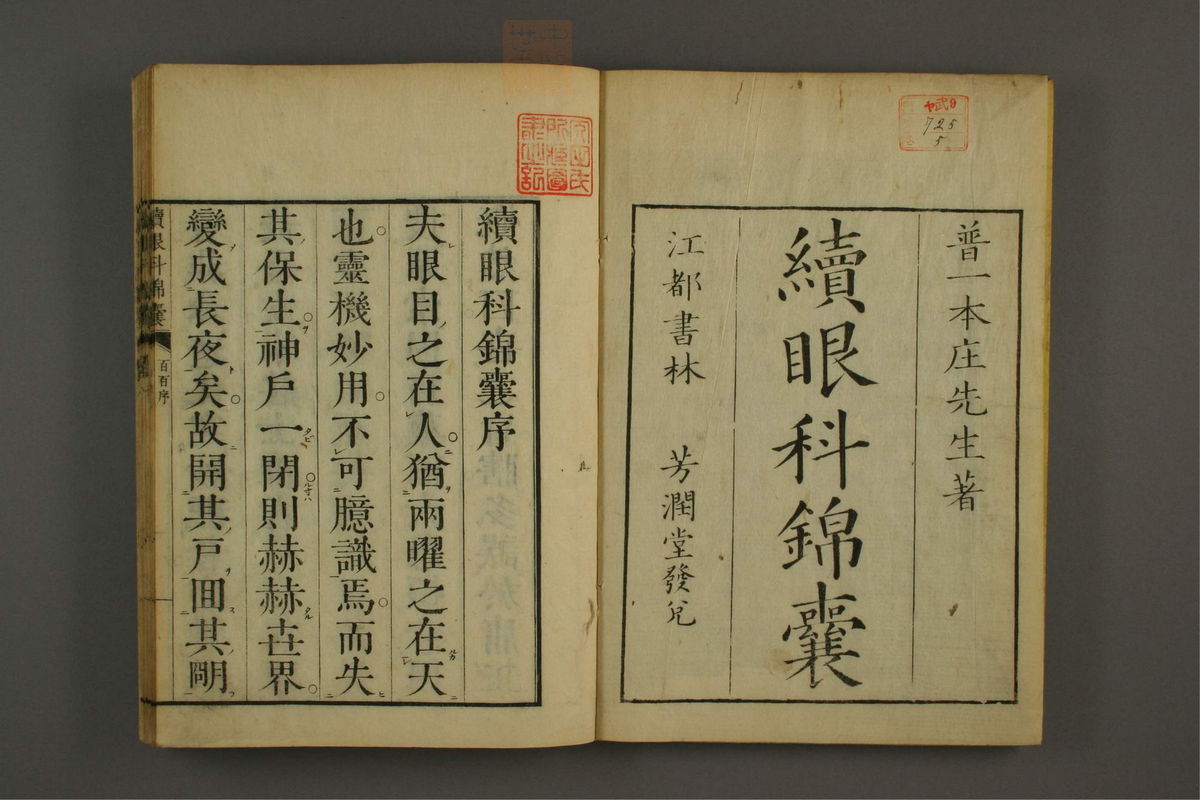 普一本庄先生著
續眼科錦囊
江都書林 芳潤堂發兌
武9
725
5
續眼科錦囊序
夫眼目之在人猶兩曜之在天
也靈機妙用不可臆識焉而失
其保生神戶一閉則赫赫世界
變成長夜矣故開其戶囬其朙
續眼科錦囊
序